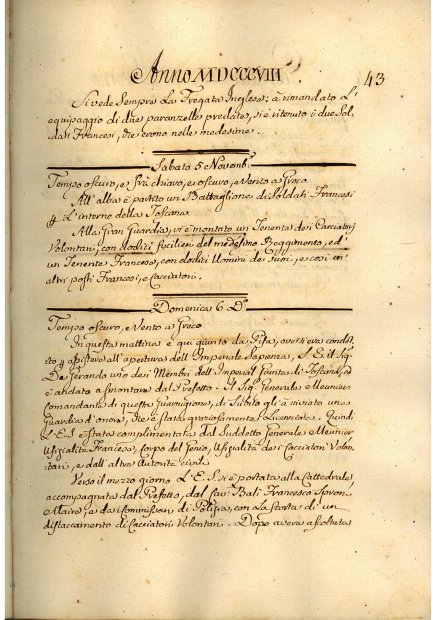 Anno MDCCCVIII
43
Si vede Sempre La Fregata Inglese; à rimandato L'
equipaggio di due paranzelle predate, si è ritenuto i due Sol-
dati Francesi, che erono nelle medesime.
Sabato 5 Novemb.
Tempo oscuro, e frà chiavo, e oscuro, e Vento a Greco.
All'alba è partito un Battaglione di Soldati Francesi
p L'interno della Toscana.
Alla Gran Guardia, vi è montato un Tenente de i Cacciatori
Volontari, con dodici fucilieri del medesimo Reggimento, ed
un Tenente Francese, con dodici Uomini de suoi, e così in
altri posti Francesi, e Cacciatori.
Domenica 6. D.o
Tempo oscuro, e Vento a Greco
In questa mattina è qui giunto da Pisa, ove si era condot-
to p assistere all'apertura dell'Imperiale Sapienza, S. E. il Sig.
De Gerando uno dei Membri dell'Imperial Giunta di Toscana, ed
è andato a smontare dal Prefetto. Il Sig. Generale Meunier
Comandante di questa Guarnigione, di Subito gli à inviato una
Guardia d'onore, che è stata graziosamente Licenziata. Quindi
L'E. S. è Stata complimentata dal Suddetto Generale Meunier
Ufizialità Francese, Corpo del Genio, Ufizialità dei Cacciatori Volon-
tari, e dall'altre Autorità Civili.
Verso il mezzo giorno L'E. S. si è portata alla Cattedrale,
accompagnata dal Prefetto, dal Cav. Balì Francesco Spron
Maire, e da Commissari di Polizia, con La Scorta di un
distaccamento di Cacciatori Volontari. Dopo avere ascoltata